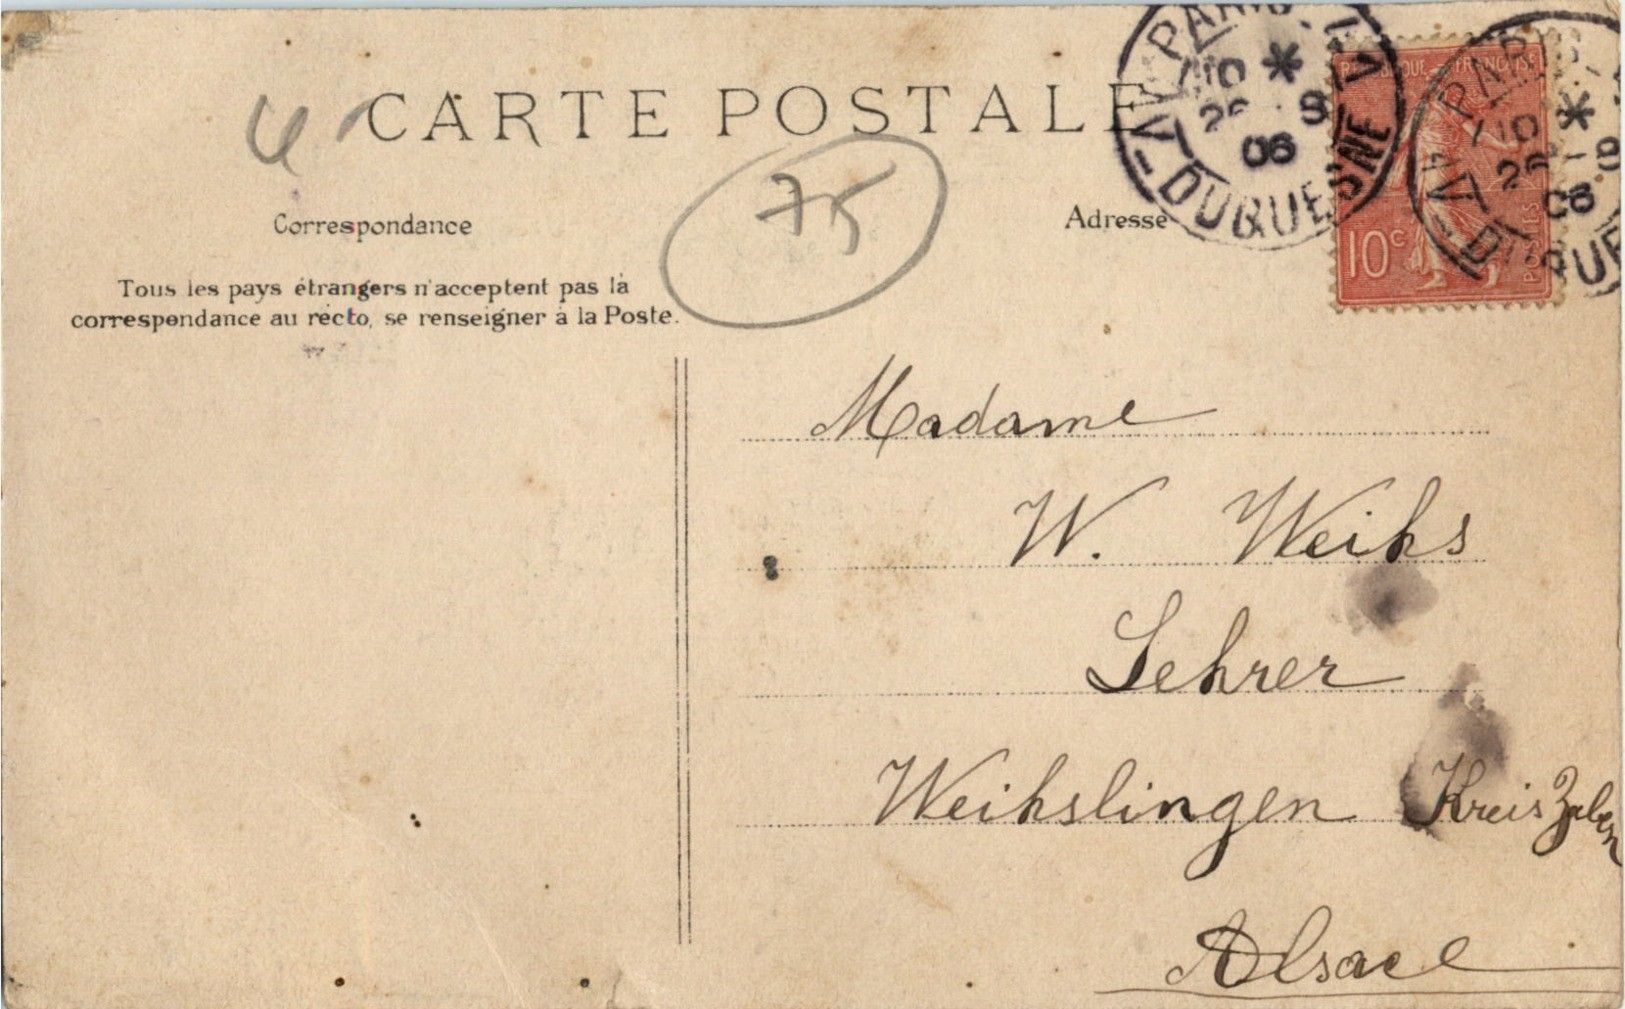 CARTE POSTALE
75
Correspondance
Adresse
Tous les pays étrangers n'acceptent pas la
correspondance au recto, se renseigner à la Poste.
PARIS
DUQUESNE
06
RÉPUBLIQUE FRANÇAISE
10c
POSTES
PARIS
06
Madame
W. Weihs
Lehrer
Weihslingen Kreis Zabern
Alsace